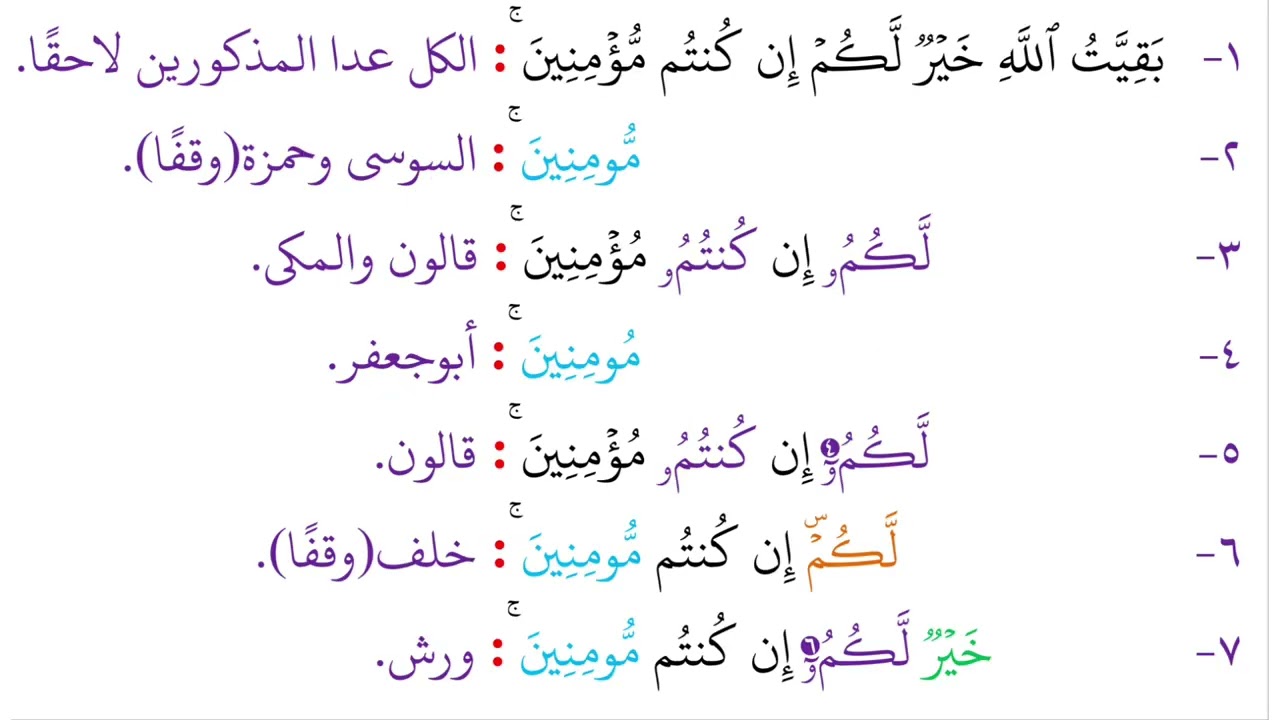 ١- بَقِيَّتُ ٱللَّهِ خَيْرٌ لَّكُمْ إِن كُنتُم مُّؤْمِنِينَ ۚ : الكل عدا المذكورين لاحقًا.
٢- مُّومِنِينَ ۚ : السوسى وحمزة(وقفًا).
٣- لَّكُمُۥ إِن كُنتُمُۥ مُؤْمِنِينَ ۚ : قالون والمكى.
٤- مُومِنِينَ ۚ : أبوجعفر.
٥- لَّكُمُۥٓ ٤ إِن كُنتُمُۥ مُؤْمِنِينَ ۚ : قالون.
٦- لَّكُمْ ۜ إِن كُنتُم مُّومِنِينَ ۚ : خلف(وقفًا).
٧- خَيْرٌ لَّكُمُۥٓ ٦ إِن كُنتُم مُّومِنِينَ ۚ : ورش.